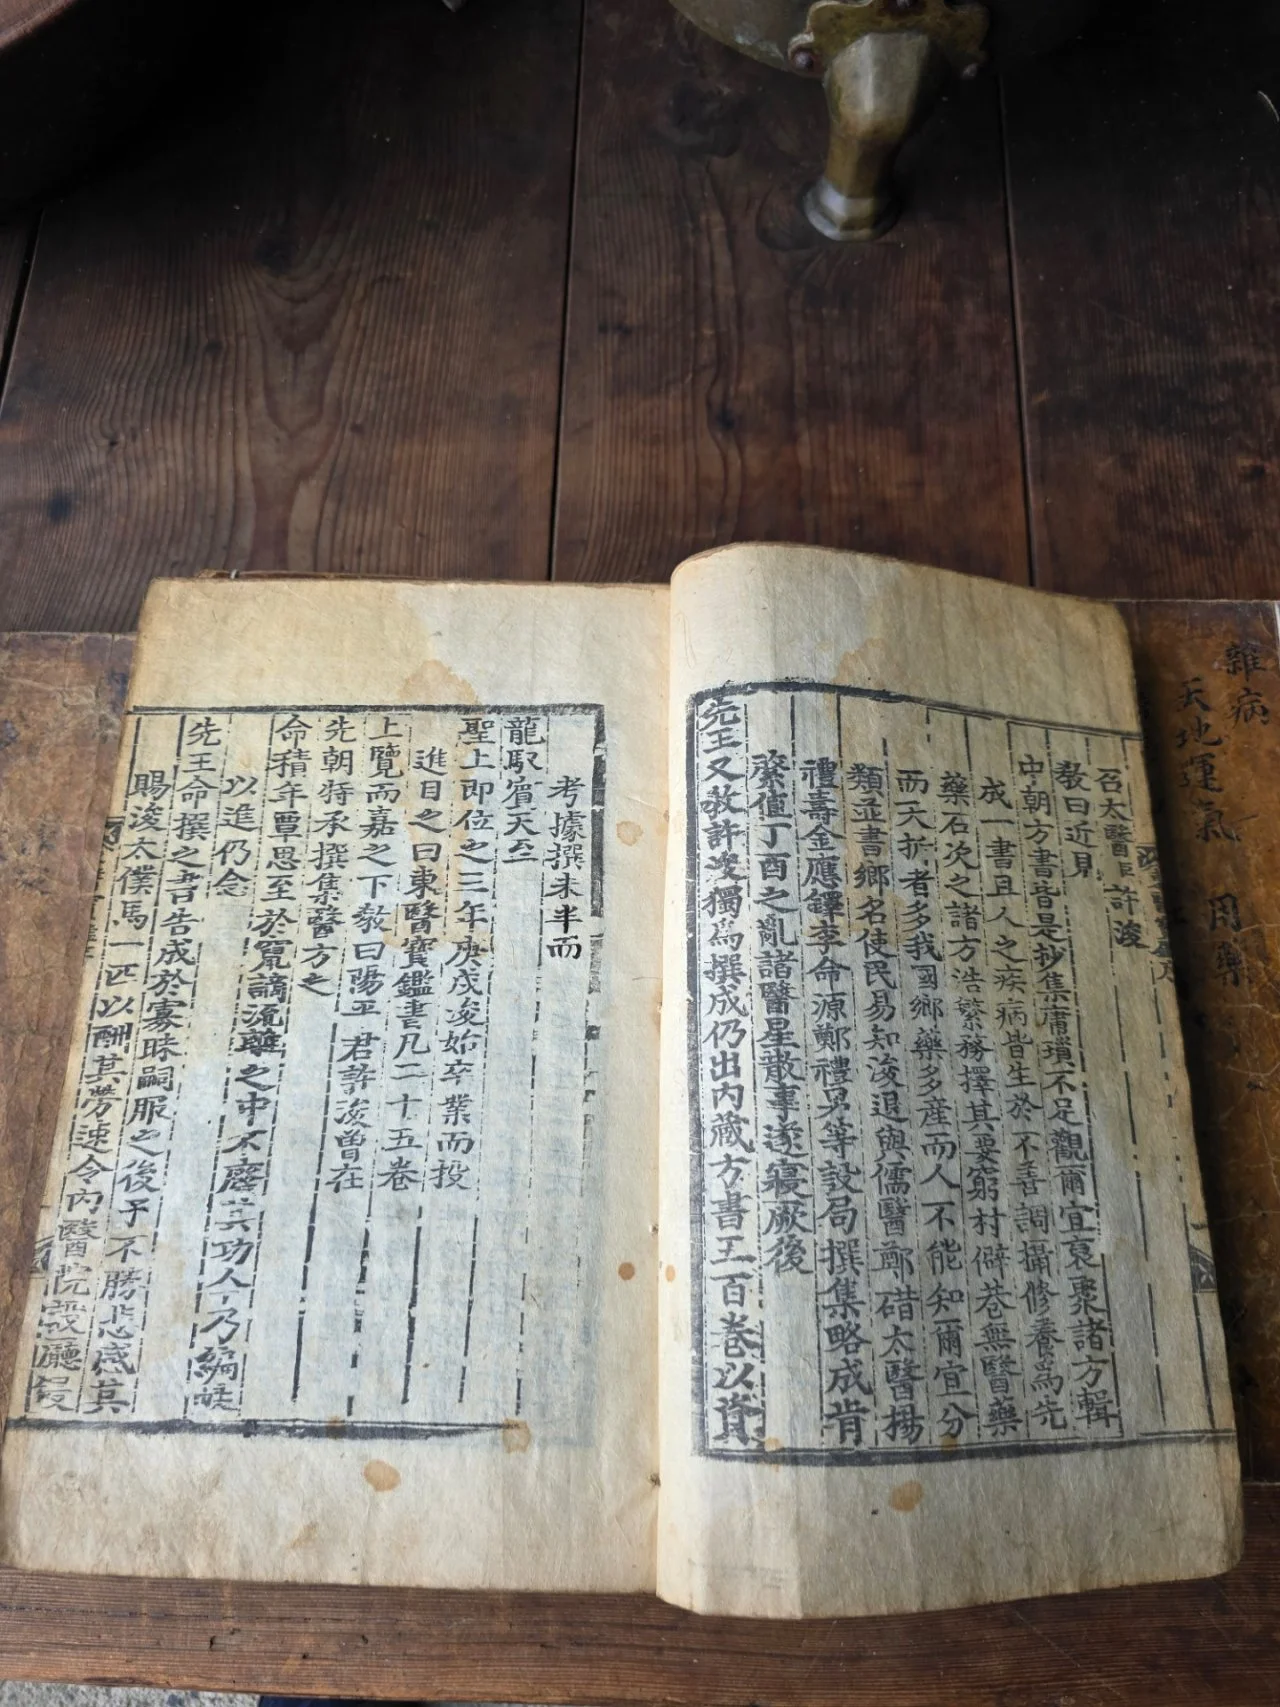 雜病
天地運氣
用藥
召太醫臣許浚
敎曰近見
中朝方書皆是抄集庸瑣不足觀爾宜裒聚諸方輯
成一書且人之疾病皆生於不善調攝修養爲先
藥石次之諸方浩繁務擇其要窮村僻巷無醫藥
而夭折者多我國鄉藥多產而人不能知爾宜分
類並書鄉名使民易知浚退與儒醫鄭碏太醫楊
禮壽金應鐸李命源鄭禮男等設局撰集略成肯
綮値丁酉之亂諸醫星散事遂寢厥後
先王又敎許浚獨爲撰成仍出內藏方書五百卷以資
考據撰未半而
龍馭賓天至
聖上即位之三年庚戌浚始卒業而投
進目之曰東醫寶鑑書凡二十五卷
上覽而嘉之下敎曰陽平君許浚曾在
先朝特承撰集醫方之
命積年覃思至於竄謫流離之中不廢其功今乃編帙
以進仍念
先王命撰之書告成於寡昧嗣服之後予不勝悲感其
賜浚太僕馬一匹以酬其勞速令內醫院設廳鋟